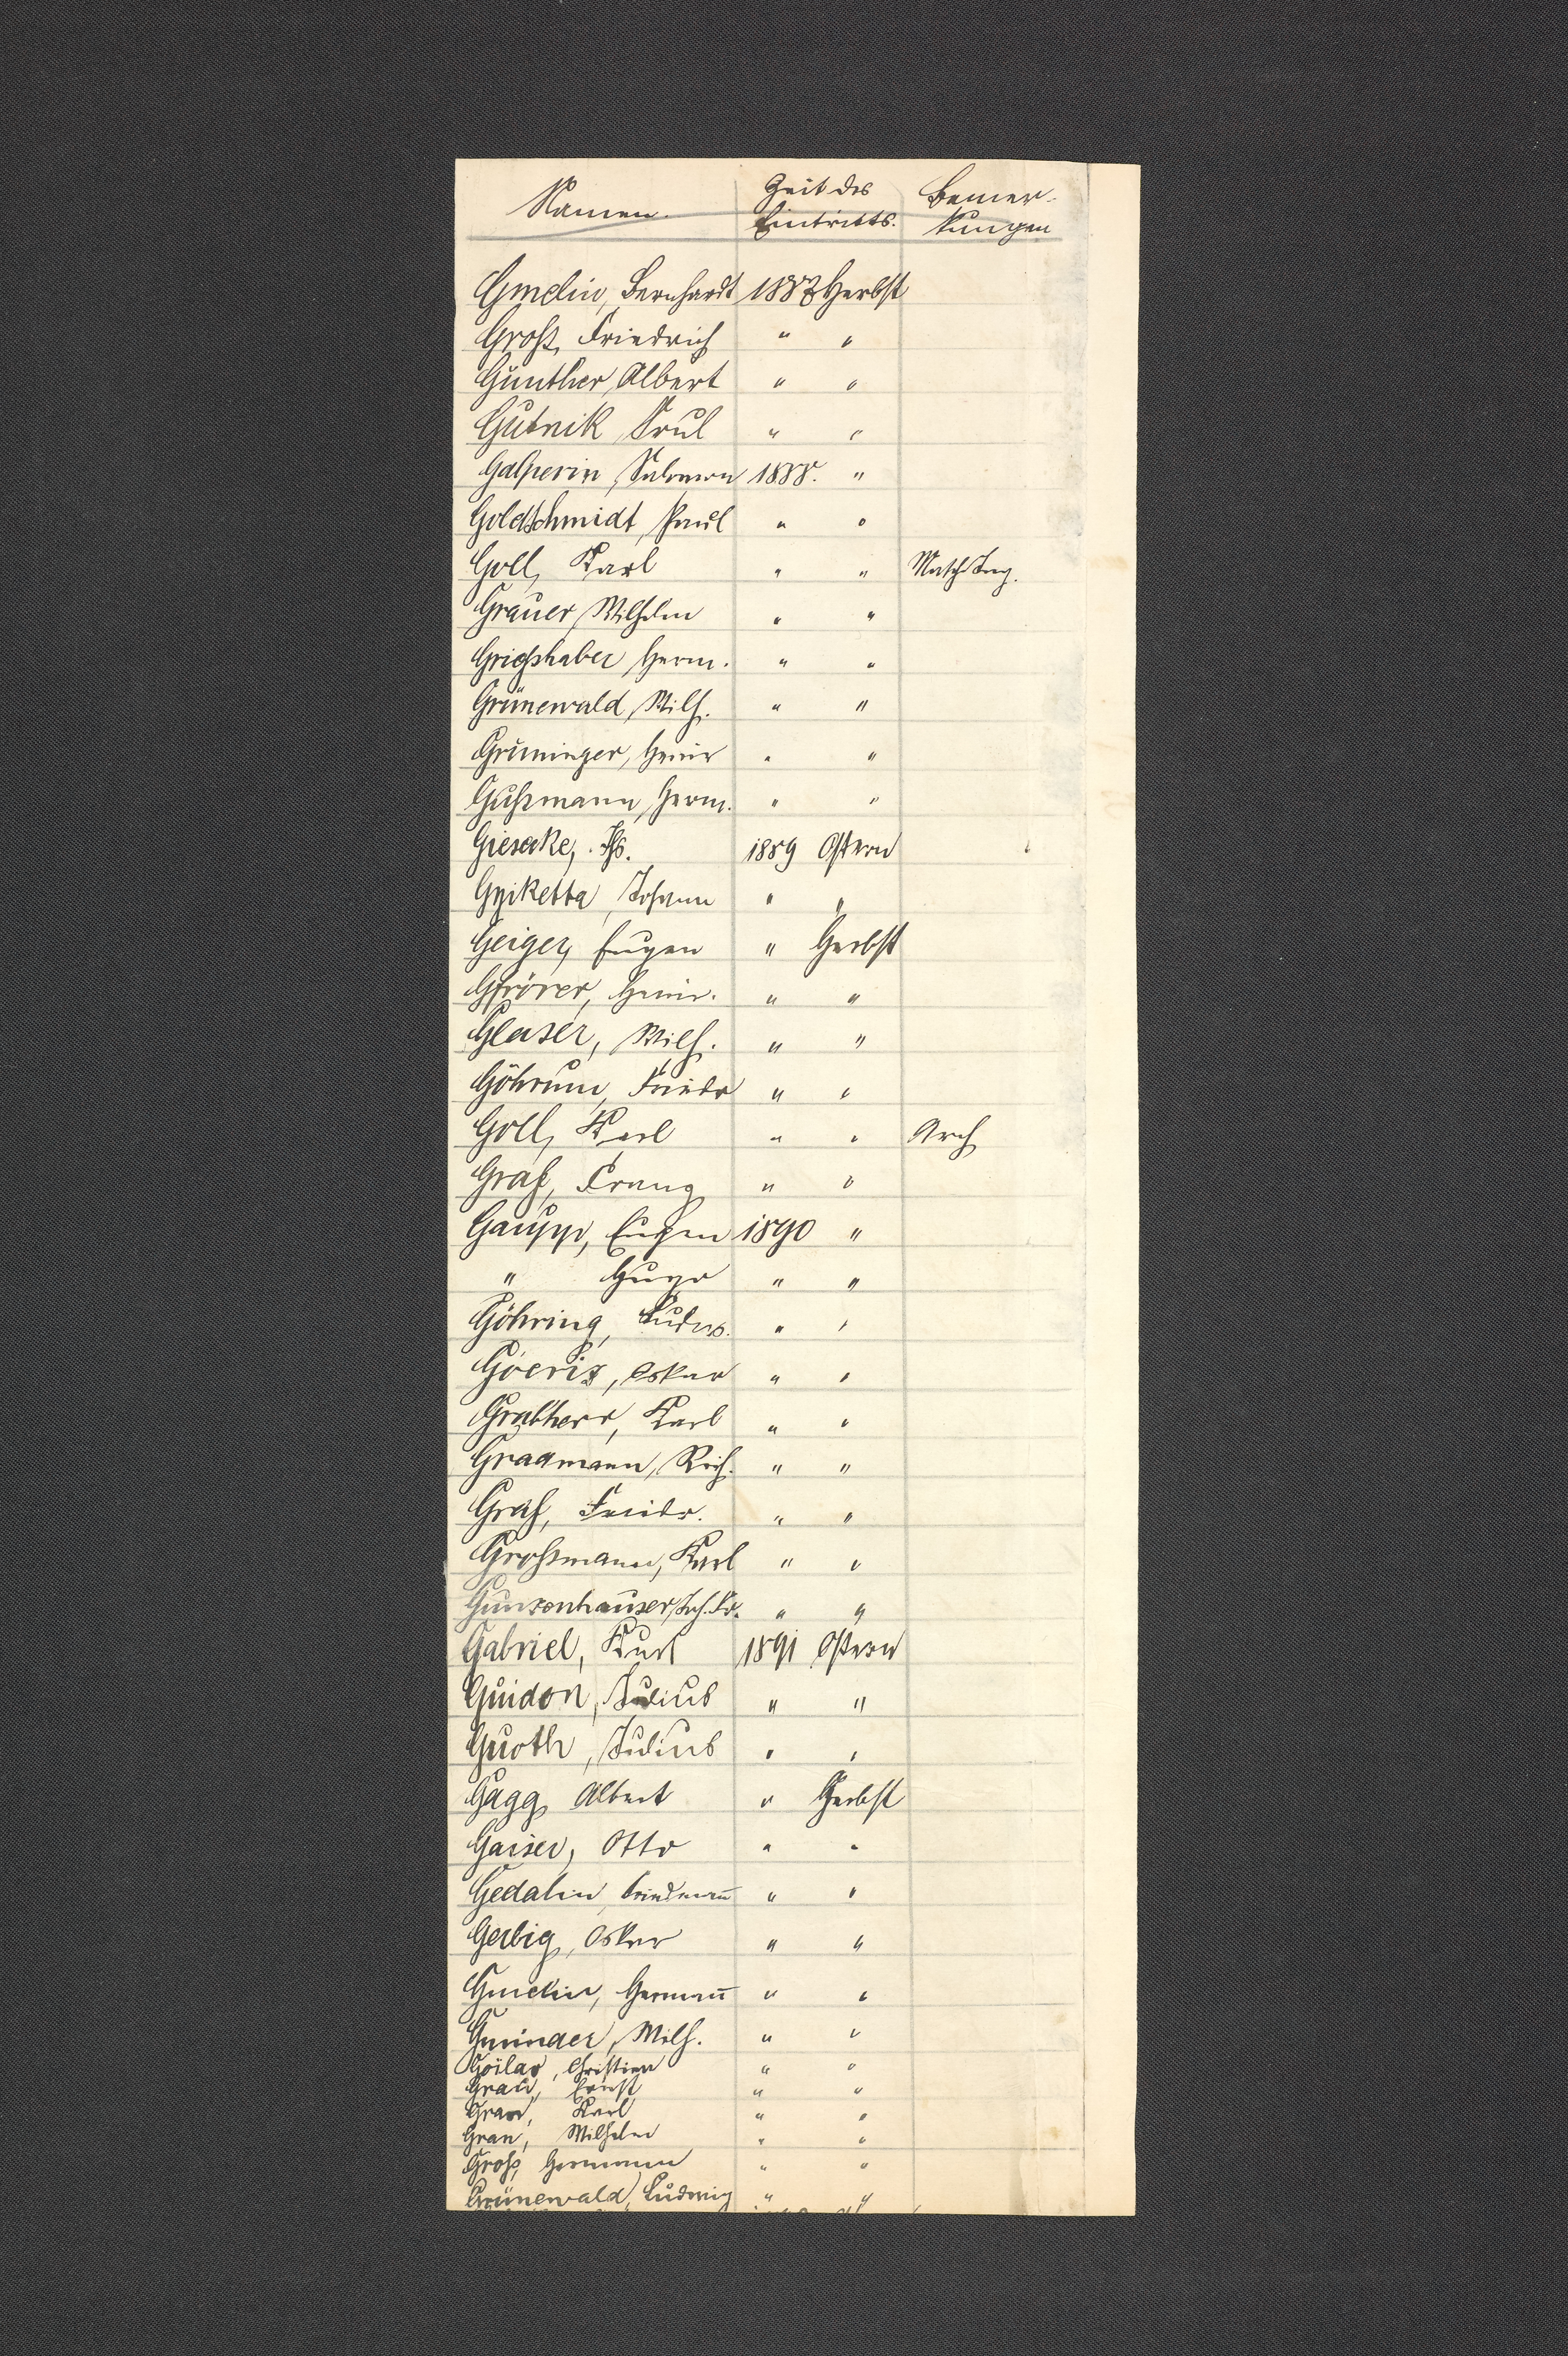 Namen. Zeit des Bemer-
Eintritts. kungen
Gmelin, Bernhardt 1887 Herbst
Groß, Friedrich " "
Günther, Albert " "
Gutnik, Srul " "
Galperin, Salomon 1888. "
Goldschmidt, Paul " "
Goll, Karl " " Masch Ing.
Grauer, Wilhelm " "
Grießhaber, Herm. " "
Grünewald, Wilh. " "
Grüninger, Heinr " "
Gußmann, Herm. " "
Giesecke, 1889 Ostern
Johann " "
Geiger, Eugen " Herbst
Gfrörer, Heinr. " "
Glaser, Wilh. " "
Göhrum, Friedr " "
Goll, Karl " " Arch
Graf, Franz " "
Gaupp, Eugen 1890 "
" Hugo " "
Göhring, Ludw. " "
Goeriz, Oskar " "
Grabherr, Karl " "
Gradmann, Rich. " "
Graf, Friedr. " "
Großmann, Karl " "
Gunzenhauser, Joh. Fr. " "
Gabriel, Kurt 1891 Ostern
Guidon, Julius " "
Guoth, Julius " "
Gagg, Albert " Herbst
Gaiser, Otto " "
Gedalin, " "
Gerbig, Oskar " "
Gmelin, Hermann̄ " "
Gminder, Wilh. " "
Christian " "
Grau, Ernst " "
Karl " "
Wilhelm " "
Groß, Hermann " "
Grünewald, Ludwig " "